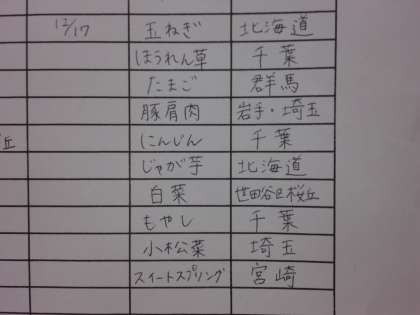 12/17 玉ねぎ 北海道
ほうれん草 千葉
たまご 群馬
豚肩肉 岩手・埼玉
丘 にんじん 千葉
じゃが芋 北海道
白菜 世田谷区桜丘
もやし 千葉
小松菜 埼玉
スイートスプリング 宮崎